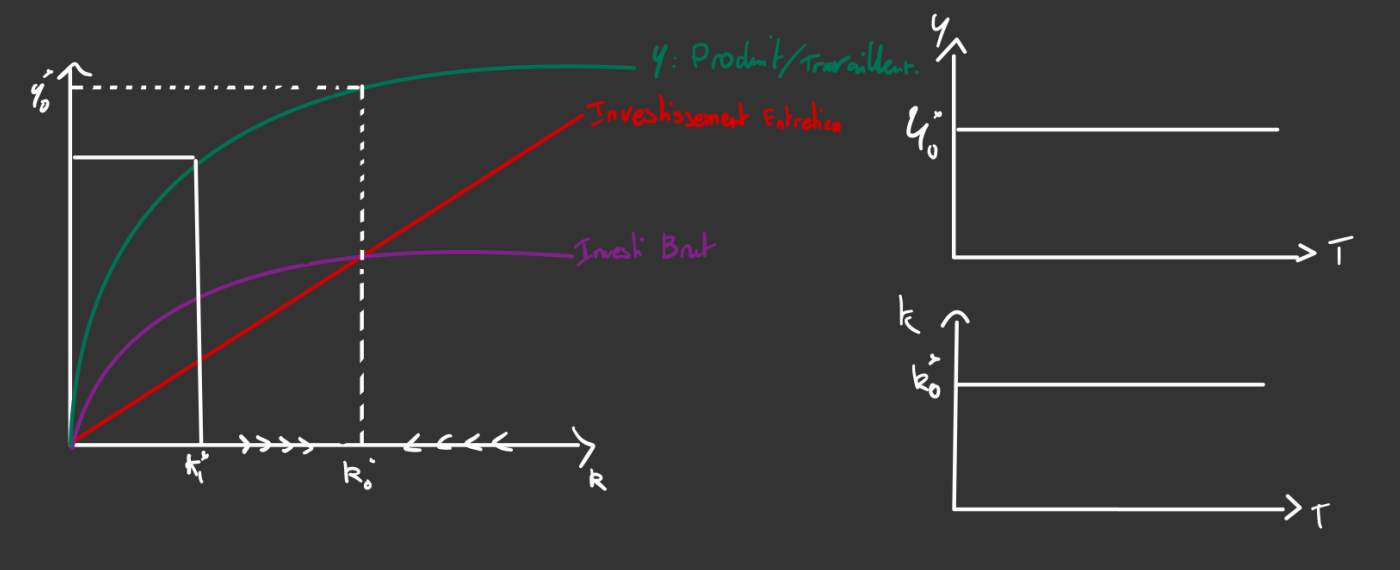 y₀*
y: Produit/Travailleur.
Investissement Entretien
Investi Brut
k₁*
k₀*
k
y
y₀*
T
k
k₀*
T